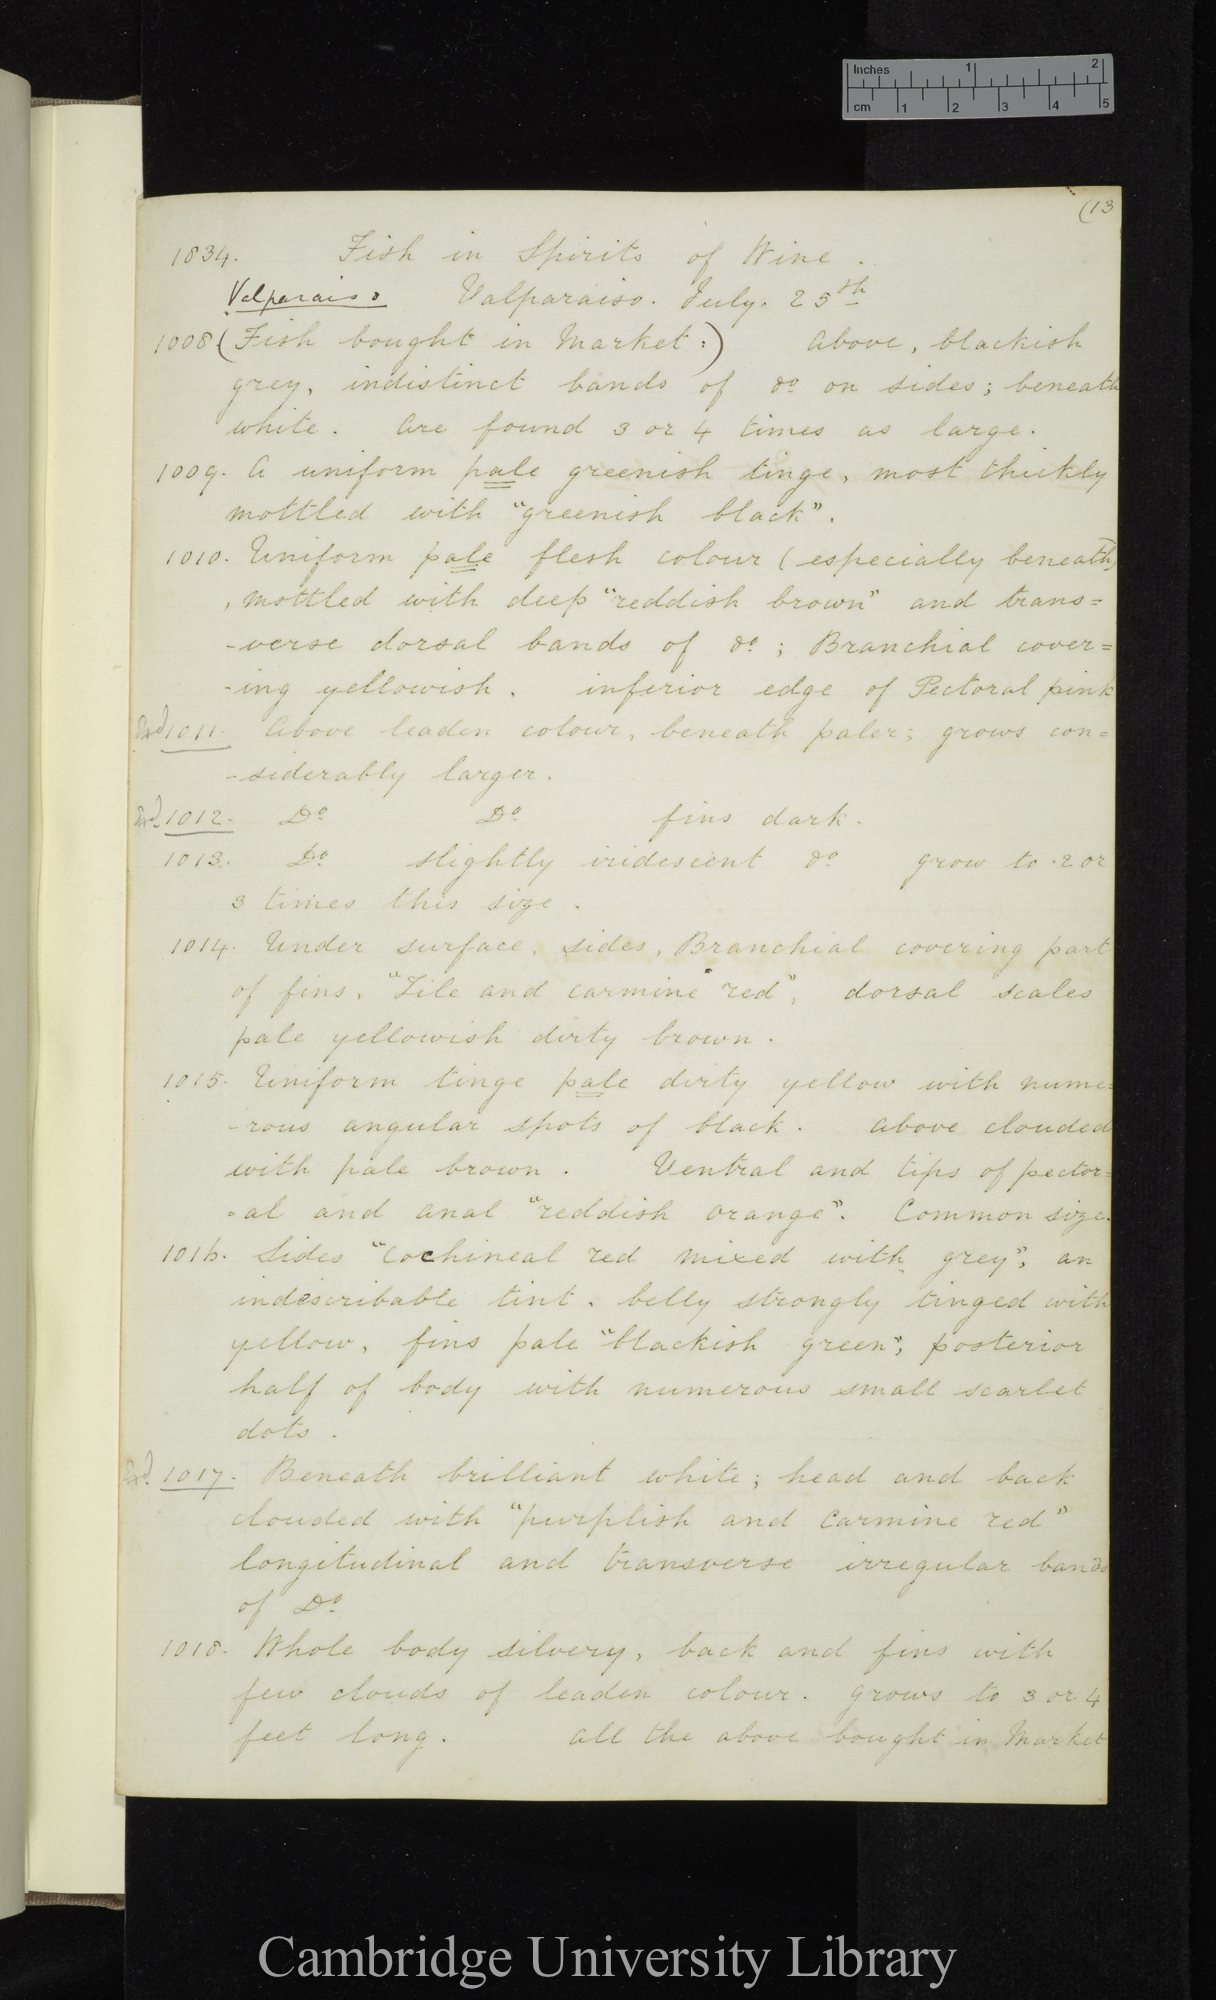 Inches 1 2
cm 1 2 3 4 5
(13
1834. Fish in Spirits of Wine.
Valparaiso Valparaiso. July. 25th
1008 (Fish bought in Market:) Above, blackish
grey, indistinct bands of do on sides; beneath
white. Are found 3 or 4 times as large.
1009. A uniform pale greenish tinge, most thickly
mottled with "greenish black".
1010. Uniform pale flesh colour (especially beneath)
, mottled with deep "reddish brown" and trans=
-verse dorsal bands of do; Branchial cover=
-ing yellowish. inferior edge of Pectoral pink
1011. Above leaden colour, beneath paler; grows con=
-siderably larger.
1012. Do Do fins dark.
1013. Do slightly iridescent do grow to 2 or
3 times this size.
1014. Under surface, sides, Branchial covering part
of fins, "Tile and carmine red", dorsal scales
pale yellowish dirty brown.
1015. Uniform tinge pale dirty yellow with nume=
-rous angular spots of black. Above clouded
with pale brown. Ventral and tips of pector=
=al and anal "reddish orange". Common size.
1016. Sides "cochineal red mixed with grey", an
indescribable tint. belly strongly tinged with
yellow, fins pale "blackish green", posterior
half of body with numerous small scarlet
dots.
1017. Beneath brilliant white; head and back
clouded with "purplish and carmine red"
longitudinal and transverse irregular bands
of Do
1018. Whole body silvery, back and fins with
few clouds of leaden colour. grows to 3 or 4
feet long. All the above bought in Market
Cambridge University Library